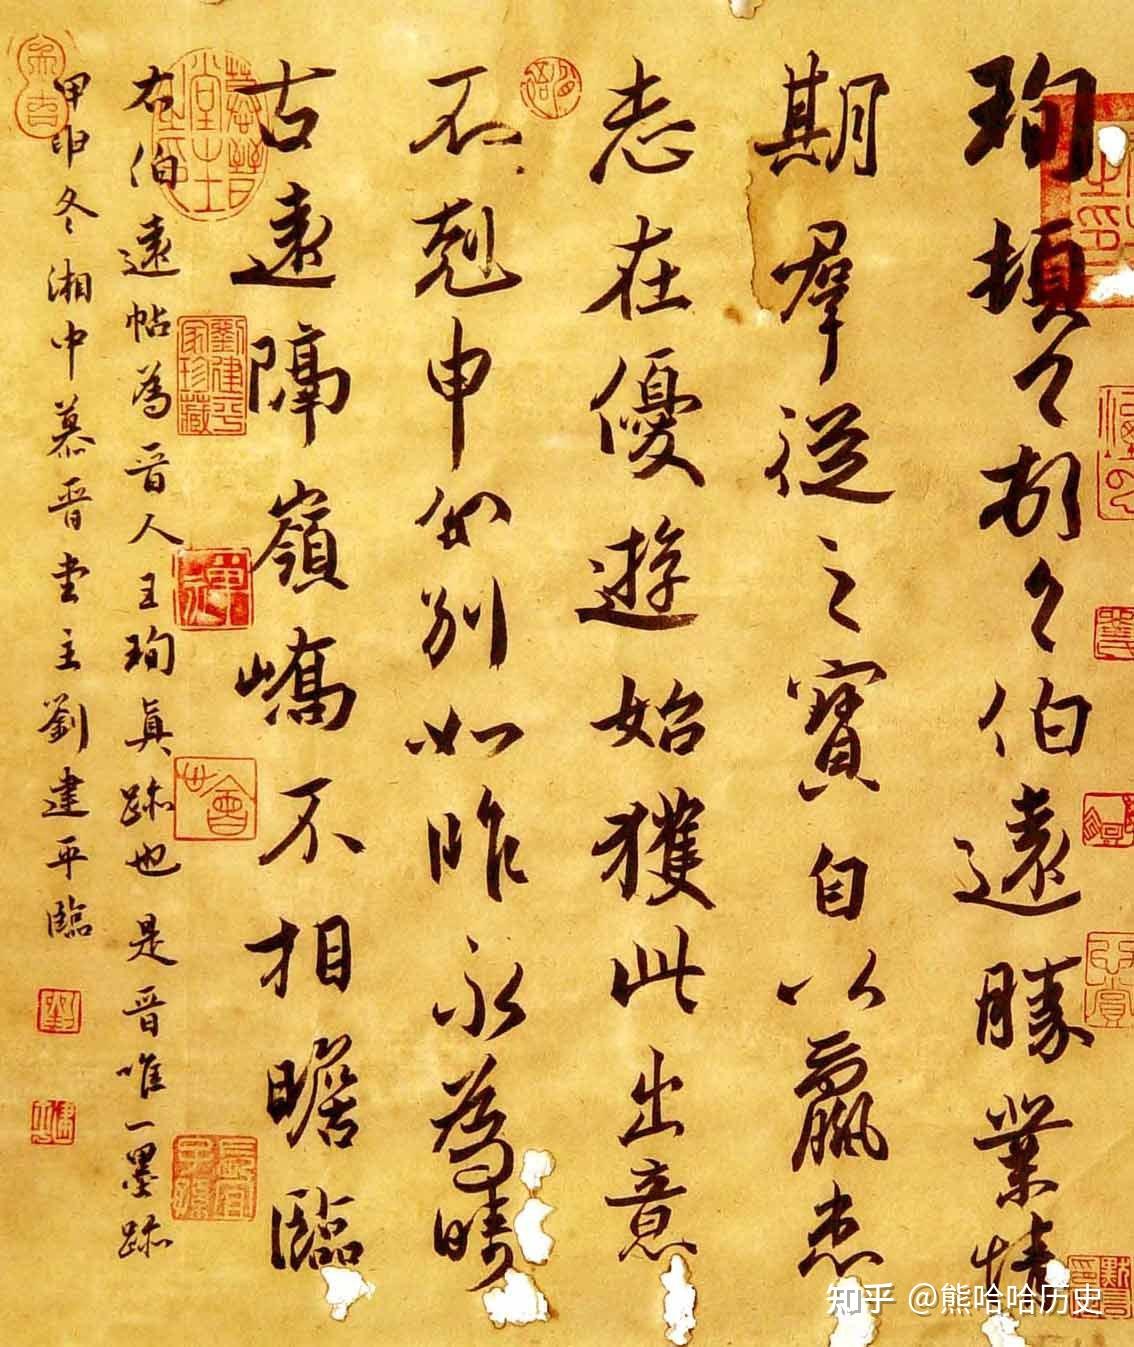 珣頓々頓々伯遠勝業情
期羣從之寶自以羸患
志在優遊始獲此出意
不剋申分別如昨永為疇
古遠隔嶺嶠不相瞻臨
右伯遠帖為晉人王珣真跡也是晉唯一墨跡
甲申冬湘中慕晉堂主劉建平臨
劉建平家珍藏
知乎 @熊哈哈历史